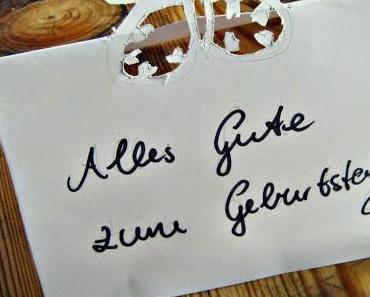 Alles Gute
zum Geburtstag